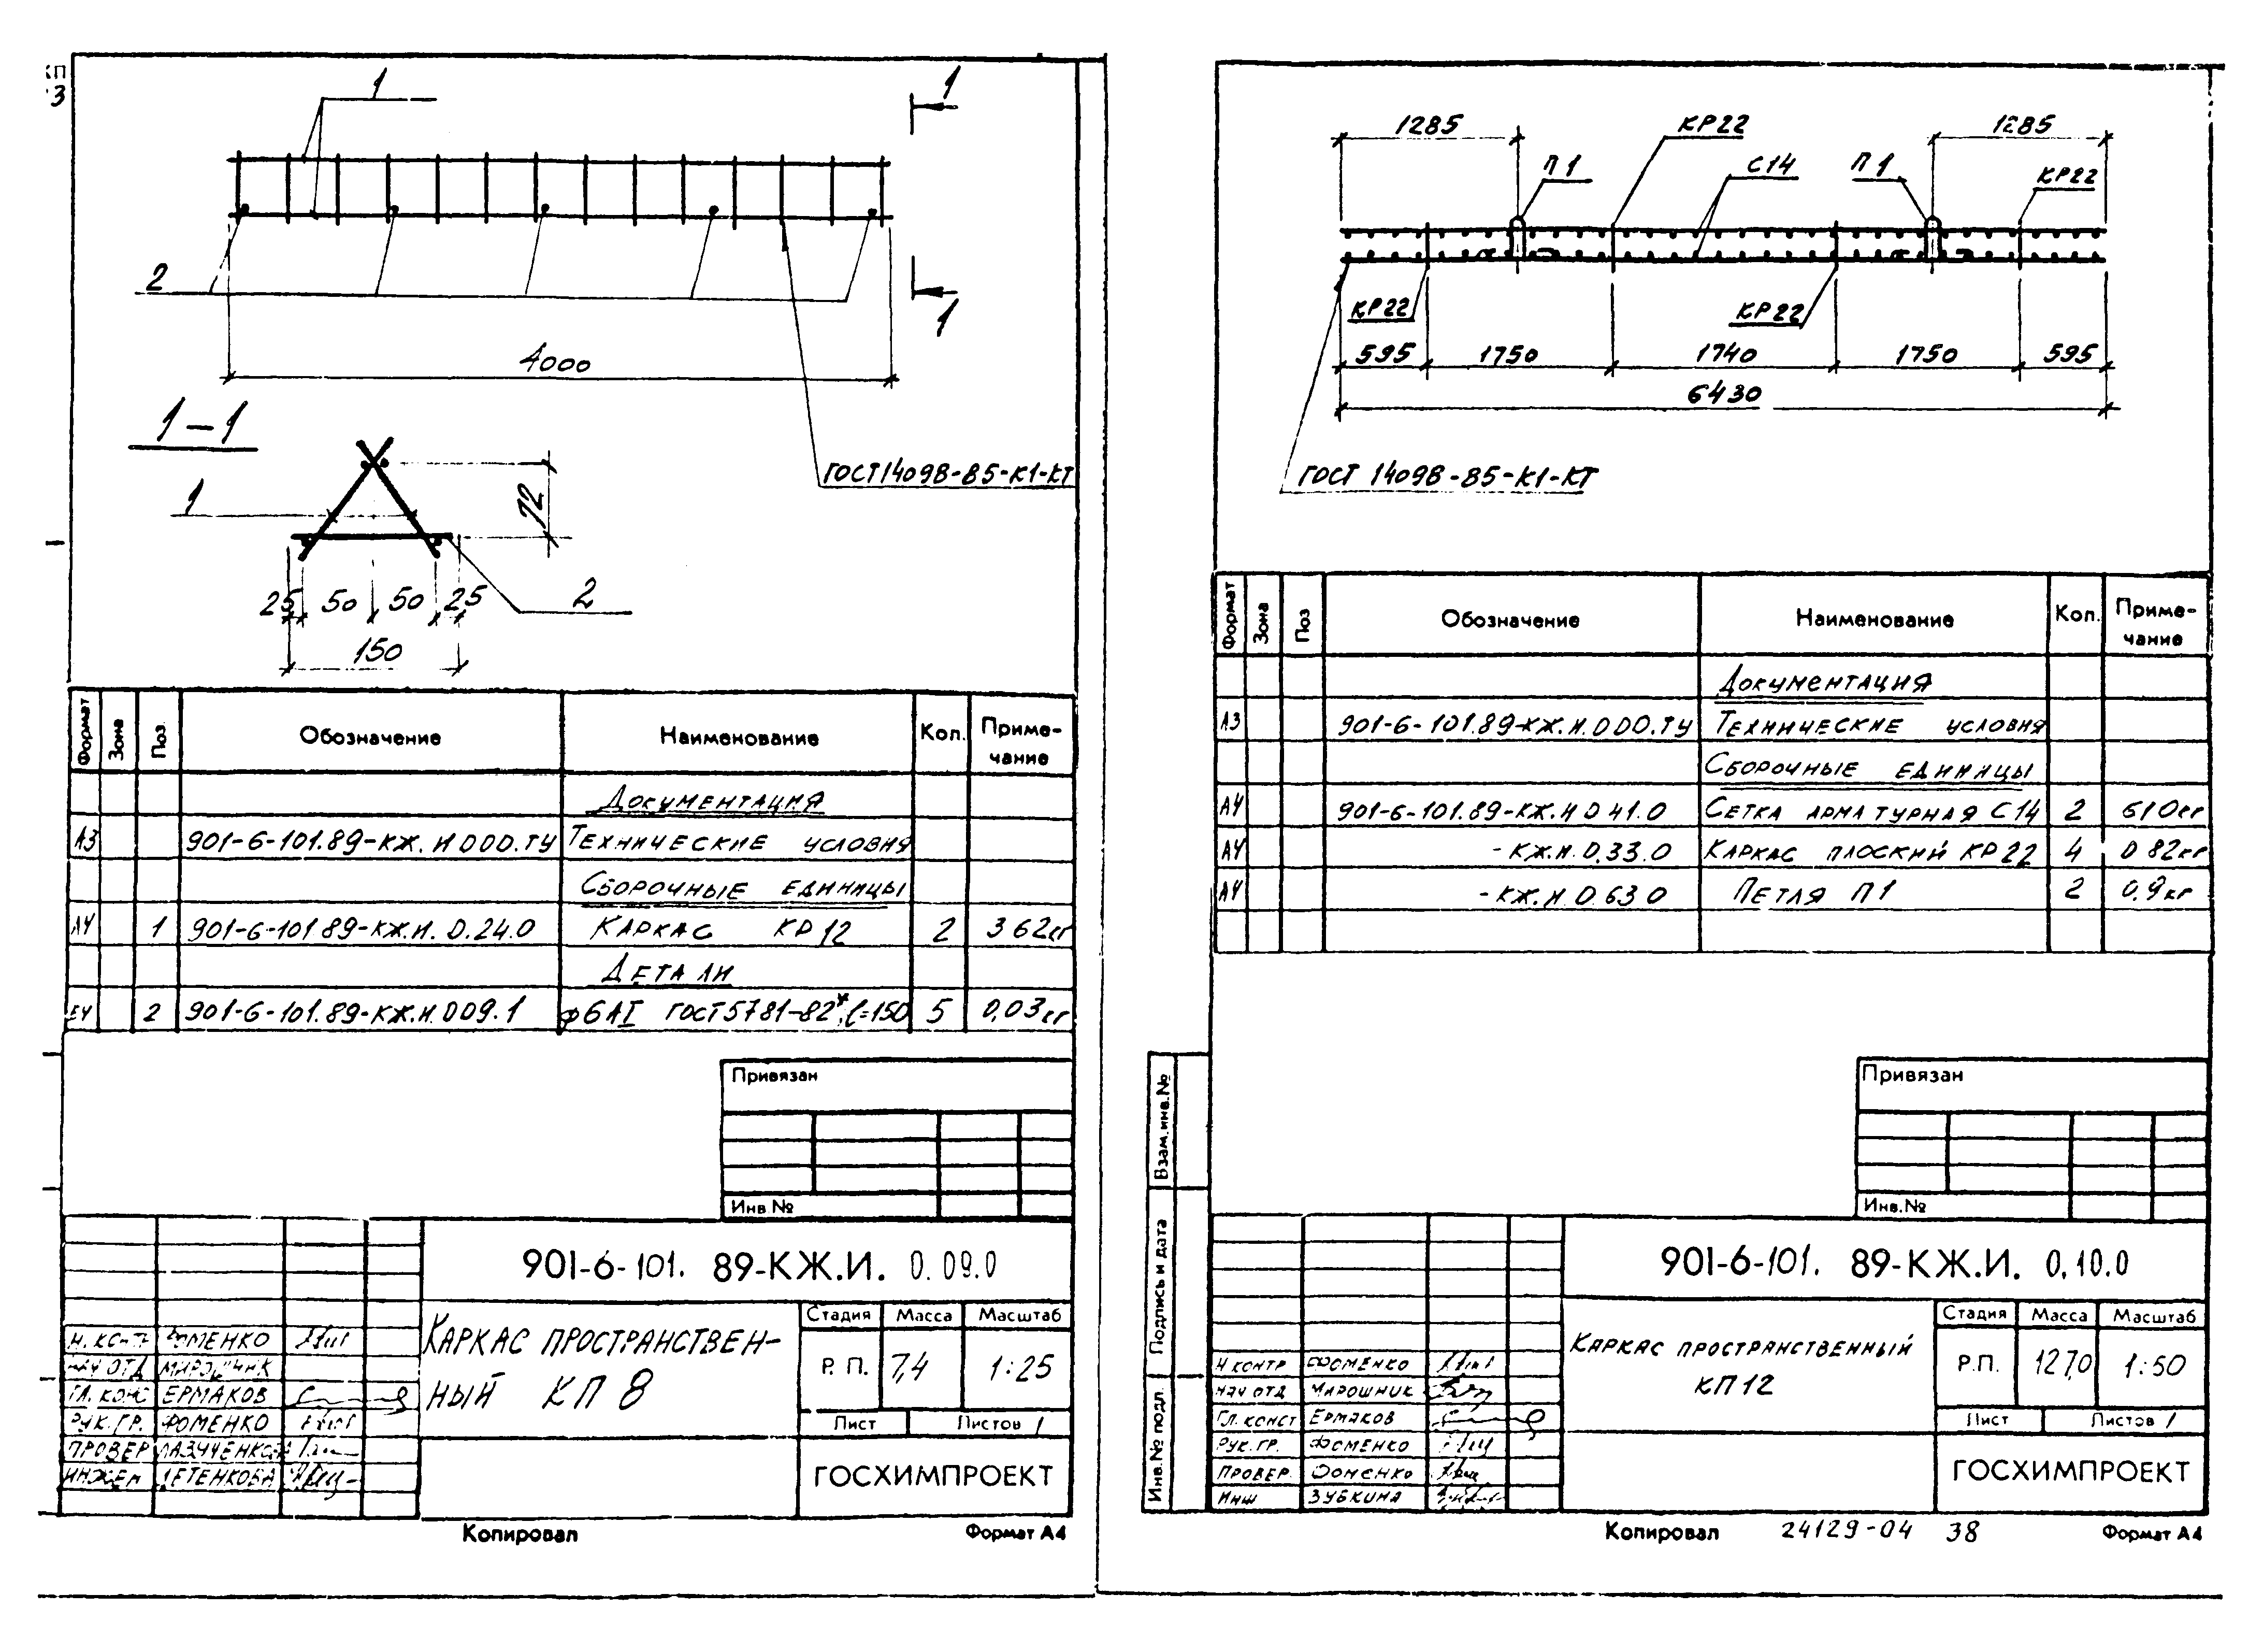 1
1
2
1
4000
1-1
ГОСТ14098-85-К1-КТ
1
72
25 50 50 25
2
150
Формат Зона Поз. Обозначение Наименование Кол. Приме-
чание
Документация
А3 901-6-101.89-КЖ.И 000.ТУ Технические условия
Сборочные единицы
А4 1 901-6-101 89-КЖ.И. 0.24.0 Каркас КР12 2 3 62кг
Детали
БЧ 2 901-6-101.89-КЖ.И.009.1 ф6АI ГОСТ5781-82*, ℓ=150 5 0,03кг
Привязан
Инв №
901-6-101. 89-КЖ.И. 0.09.0
Каркас пространствен-
ный КП 8
Стадия Масса Масштаб
Р.П. 7,4 1:25
Лист Листов 1
ГОСХИМПРОЕКТ
Н. контр Фоменко
Нач отд Мирошник
Гл. конс Ермаков
Рук. гр. Фоменко
Провер
Инжен
Копировал Формат А4
1285 КР22 1285
П1 С14 П1 КР22
КР22 КР22
595 1750 1740 1750 595
6430
ГОСТ 14098-85-К1-КТ
Формат Зона Поз Обозначение Наименование Кол. Приме-
чание
Документация
А3 901-6-101.89-КЖ.И.000.ТУ Технические условия
Сборочные единицы
А4 901-6-101.89-КЖ.И 0 41.0 Сетка арматурная С14 2 61 0кг
А4 -КЖ.И.0.33.0 Каркас плоский КР22 4 0 82кг
А4 -КЖ.И.0.63 0 Петля П1 2 0.9кг
Привязан
Инв.№
Взам.инв.№
Подпись и дата
Инв.№ подл.
901-6-101. 89-КЖ.И. 0.10.0
Каркас пространственный
КП12
Стадия Масса Масштаб
Р.П. 127,0 1:50
Лист Листов 1
ГОСХИМПРОЕКТ
Н контр Фоменко
Нач отд Мирошник
Гл. конст Ермаков
Рук. гр. Фоменко
Провер. Фоменко
Инж Зубкина
Копировал 24129-04 38 Формат А4